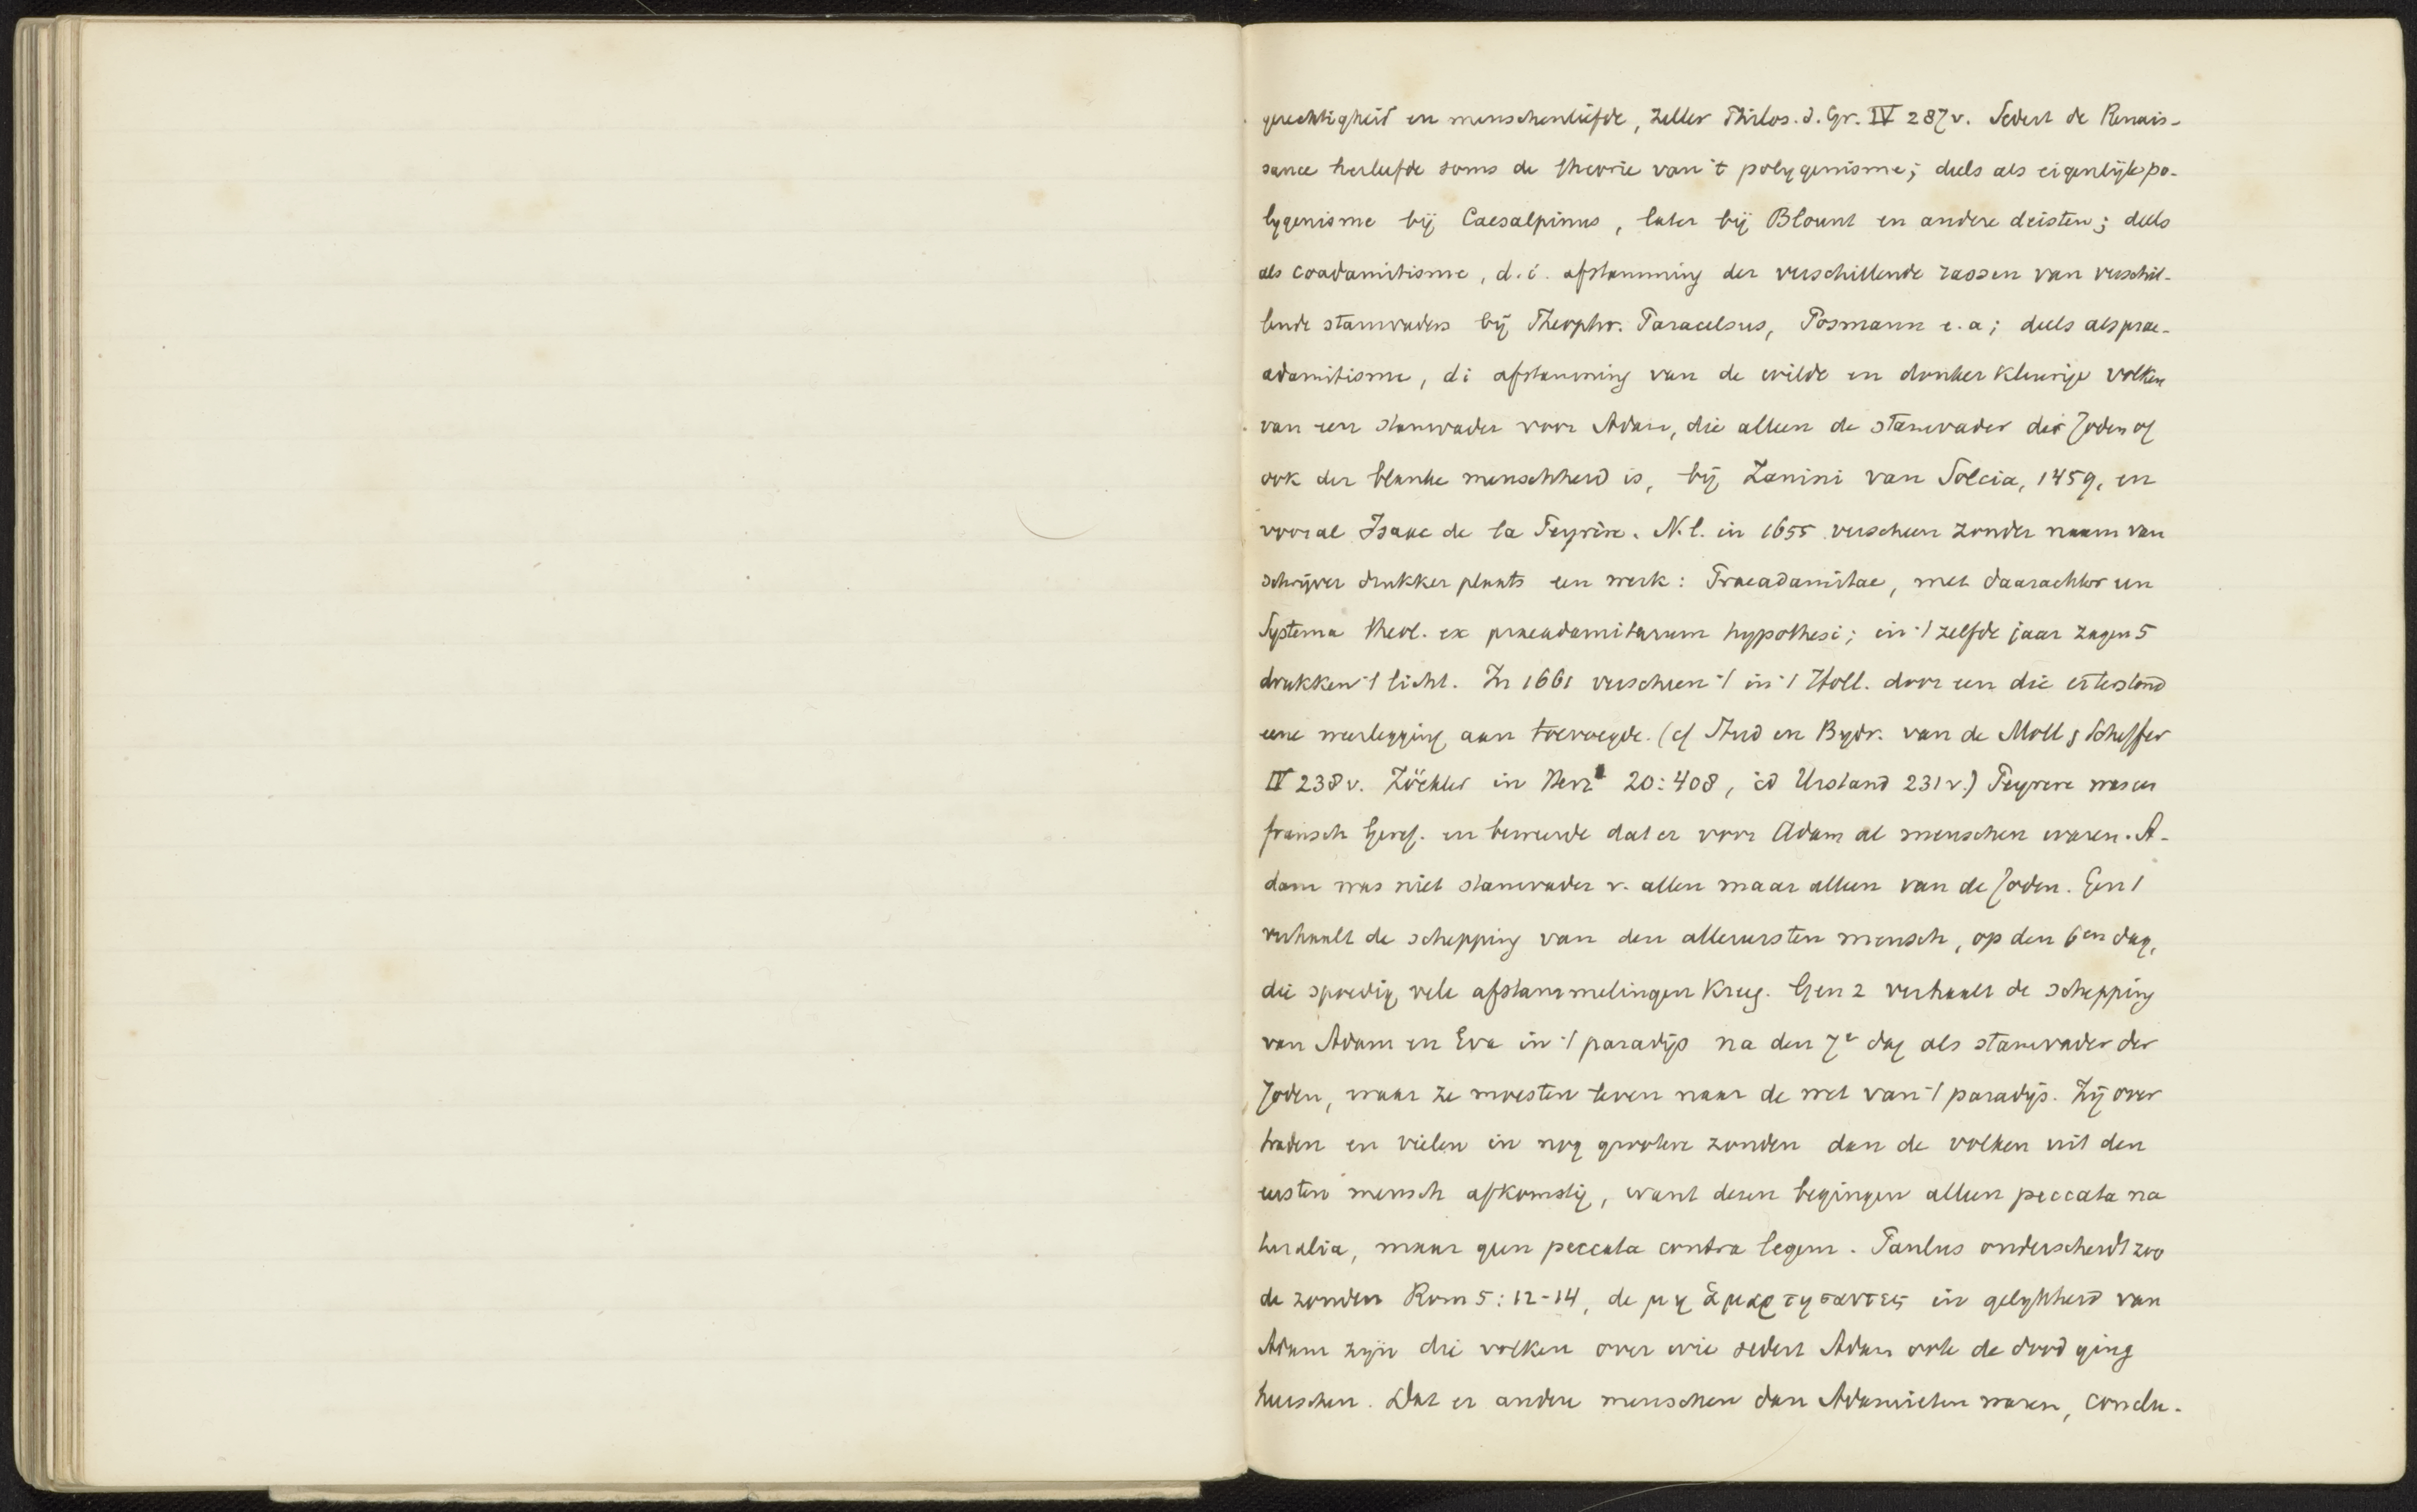 gerechtigheid en menschenliefde, Zeller Philos. d. Gr. IV 287v. Sedert de Renais-
sance herleefde soms de theorie van 't polygenisme; deels als eigenlijk po-
lygenisme bij Caesalpinus, later bij Blount en andere deisten; deels
als coadamitisme, d.i. afstamming der verschillende rassen van verschil-
lende stamvaders bij Theophr. Paracelsus, Posmann e.a; deels als prae-
adamitisme, di afstamming van de wilde en donker kleurige volken
van een stamvader voor Adam, die alleen de stamvader der Joden of
ook der blanke menschheid is, bij Zanini van Solcia, 1459, en
vooral Isaac de la Peyrère. N.l. in 1655 verscheen zonder naam van
schrijver drukker plaats een werk: Praeadamitae, met daarachter een
Systema theol. ex praeadamitarum hypothesi; in 't zelfde jaar zagen 5
drukken 't licht. In 1661 verscheen 't in 't Holl. door een die er terstond
eene weerlegging aan toevoegde. (cf Stud en Bydr. van de Moll & Scheffer
IV 238v. Zöckler in Herz² 20:408, id Urstand 231v.) Peyrere was een
fransch Geref. en beweerde dat er voor Adam al menschen waren. A-
dam was niet stamvader v. allen maar alleen van de Joden. Gen 1
verhaalt de schepping van den allereersten mensch, op den 6en dag,
die spoedig vele afstammelingen kreeg. Gen 2 verhaalt de schepping
van Adam en Eva in 't paradijs na den 7e dag als stamvader der
Joden, waar ze moesten leven naar de wet van 't paradijs. Zij over
traden en vielen in nog grootere zonden dan de volken uit den
eersten mensch afkomstig, want dezen begingen alleen peccata na
turalia, maar geen peccata contra legem. Paulus onderscheidt zoo
de zonden Rom 5:12-14, de μη ἁμαρτησαντες in gelykheid van
Adam zyn die volken over wie sedert Adam ook de dood ging
heerschen. Dat er andere menschen dan Adamieten waren, conclu-